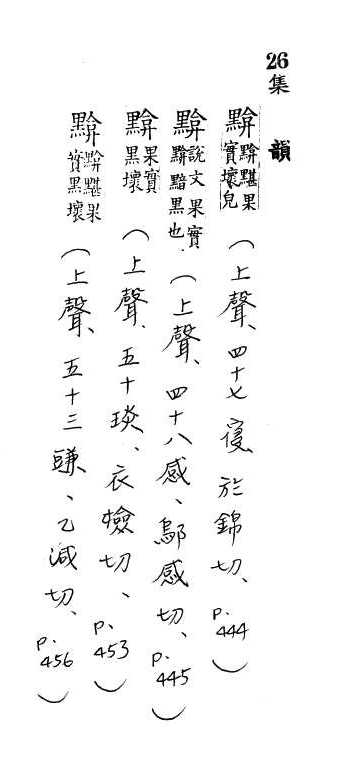 26 集韻
黭 黭黮果實壞皃 (上聲、四十七寑於錦切、p.444)
黭 說文果實黭黯黑也. (上聲、四十八感、鄔感切、p.445)
黭 果實黑壞 (上聲、五十琰、衣檢切、p.453)
黭 黭黮果實黑壞 (上聲、五十三豏、乙減切、p.456)